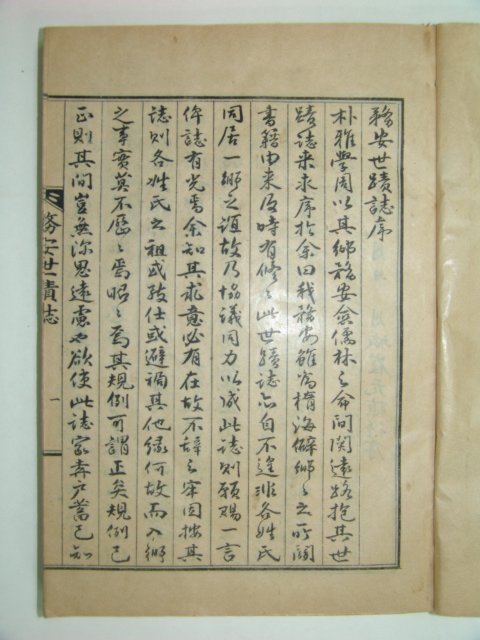 務安世蹟誌序
朴雅學周以其鄉務安僉儒林之命間関遠路抱其世
蹟誌来求序於余曰我務安雖爲楷海僻鄉之所関
書籍由来及時有修之此世蹟誌亦自不逮班各姓氏
同居一鄉之誼故乃協議同力以成此誌則願賜一言
俾誌有光焉余知其求意必有在故不辞之牢因按其
誌則各姓氏之祖或致仕或避禍其他緣何故而入鄉
之事實莫不歷之焉昭之焉其規例可謂正矣規例已
正則其間豈無深思遠慮也欲使此誌家弆戶蓄已知
務安世蹟誌
一